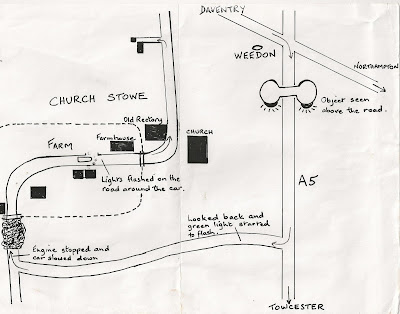 DAVENTRY
WEEDON
NORTHAMPTON
CHURCH STOWE
Object seen
above the road.
Old Rectory
Farmhouse
CHURCH
FARM
Lights flashed on the
road around the car.
A5
Looked back and
green light started
to flash.
Engine stopped and
car slowed down
TOWCESTER